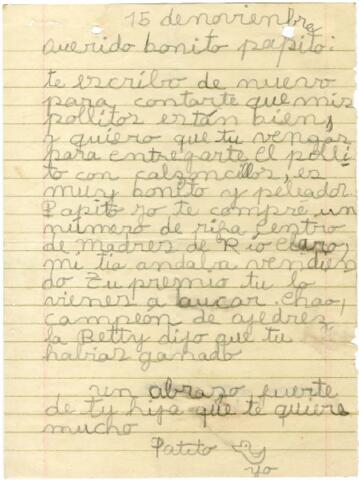 15 de noviembre
querido bonito papito:
te escribo de nuevo
para contarte que mis
pollitos están bien,
y quiero que tu vengas
para entregarte el polli
to con calzoncillos, es
muy bonito y peleador.
Papito yo te compré un
número de rifa, centro
de Madres de Rio Claro,
mi tia andaba vendien
do tu premio tu lo
vienes a buscar. chao,
campeón de ajedrez,
la Betty dijo que tu
habias ganado
un abrazo fuerte
de ty hija que te quiere
mucho
Patito y
yo